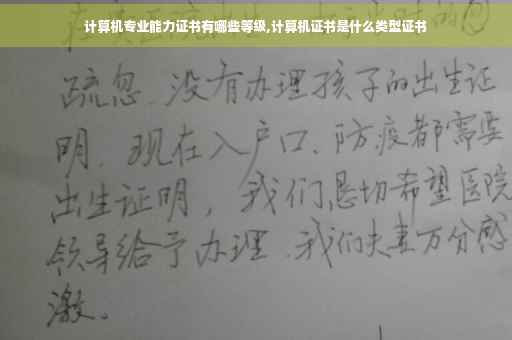 计算机专业能力证书有哪些等级,计算机证书是什么类型证书
疏忽、没有办理孩子的出生证
明、现在入户口、防疫都需要
出生证明，我们恳切希望医院
领导给予办理、我们夫妻万分感
激。